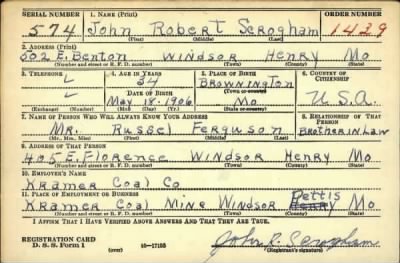 SERIAL NUMBER 1. NAME (Print) ORDER NUMBER
574 John Robert Scrogham 1429
(First) (Middle) (Last)
2. ADDRESS (Print)
502 E. Benton Windsor Henry Mo
(Number and street or R. F. D. number) (Town) (County) (State)
3. TELEPHONE 4. AGE IN YEARS 5. PLACE OF BIRTH 6. COUNTRY OF CITIZENSHIP
34 Brownington
DATE OF BIRTH (Town or county)
May 18, 1906 Mo U.S.A.
(Exchange) (Number) (Mo.) (Day) (Yr.) (State or country)
7. NAME OF PERSON WHO WILL ALWAYS KNOW YOUR ADDRESS 8. RELATIONSHIP OF THAT PERSON
Mr. Russel Ferguson Brother in Law
(Mr., Mrs., Miss) (First) (Middle) (Last)
9. ADDRESS OF THAT PERSON
405 E. Florence Windsor Henry Mo
(Number and street or R. F. D. number) (Town) (County) (State)
10. EMPLOYER'S NAME
Kramer Coal Co
11. PLACE OF EMPLOYMENT OR BUSINESS Pettis
Kramer Coal Mine Windsor Henry Mo
(Number and street or R. F. D. number) (Town) (County) (State)
I AFFIRM THAT I HAVE VERIFIED ABOVE ANSWERS AND THAT THEY ARE TRUE.
REGISTRATION CARD
D. S. S. Form 1 (over) 16—17105 John R. Scrogham
(Registrant's signature)